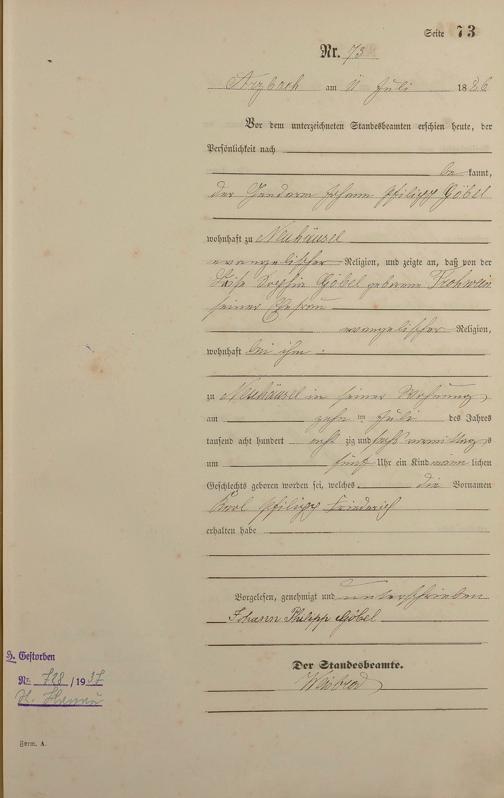 Seite 73
Nr. 73
Arzbach am 11 Juli 1886
Vor dem unterzeichneten Standesbeamten erschien heute, der
Persönlichkeit nach
be kannt,
der Gendarm Johann Philipp Göbel
wohnhaft zu Neuhäusel
evangelischer Religion, und zeigte an, daß von der
Sophia Göbel geborene Frohwein
seiner Ehefrau
evangelischer Religion,
wohnhaft bei ihm
zu Neuhäusel in seiner Wohnung
am zehn ten Juli des Jahres
tausend acht hundert acht zig und sechs vormittags
um fünf Uhr ein Kind männ lichen
Geschlechts geboren worden sei, welches die Vornamen
Karl Philipp Friedrich
erhalten habe
Vorgelesen, genehmigt und unterschrieben
Johann Philipp Göbel
Der Standesbeamte.
H. Gestorben
Nr. 728/1937
St. Hanau
Form. A.